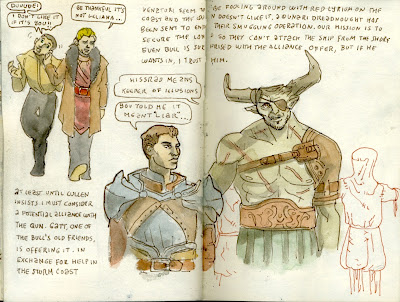 DUUUDE!
I DON'T LIKE IT
IF IT'S YOU!!!
BE THANKFUL IT'S
NOT LELIANA...
VENATORI SEEM TO
COAST AND THE
BEEN SENT TO
SECURE THE
EVEN BULL IS
WANTS IN, I TRUST
BE FOOLING AROUND WITH RED LYRIUM ON THE
N DOESN'T LIKE IT, A QUNARI DREADNOUGHT HAS
THEIR SMUGGLING OPERATION. OUR MISSION IS TO
SO THEY CAN'T ATTACK THE SHIP FROM THE SHORE
PRISED WITH THE ALLIANCE OFFER, BUT IF HE
HIM.
HISSRAD MEANS
KEEPER OF ILLUSIONS
YOU TOLD ME IT
MEANT "LIAR"...
AT LEAST UNTIL CULLEN
INSISTS. I MUST CONSIDER
A POTENTIAL ALLIANCE WITH
THE QUN. GATT, ONE OF
THE BULL'S OLD FRIENDS,
IS OFFERING IT. IN
EXCHANGE FOR HELP IN
THE STORM COAST